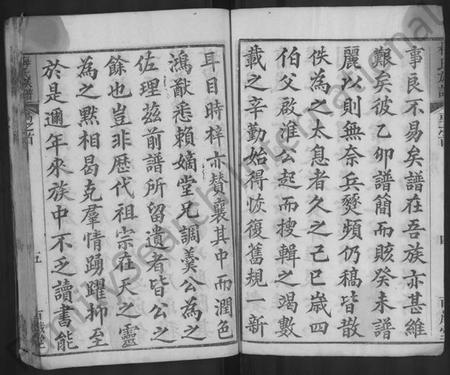 事良不易矣譜在吾族亦甚維
艱矣彼乙卯譜簡而賅癸未譜
麗以則無奈兵燹頻仍稿皆散
佚為之太息者久之己巳歲四
伯父啟淮公起而搜輯之竭數
載之辛勤始得恢復舊規一新
耳目時梓亦贊襄其中而潤色
鴻猷悉賴嫡堂兄調羹公為之
佐理茲前譜所留遺者皆公之
餘也豈非歷代祖宗在天之靈
為之黙相曷克羣情踴躍抑至
於是邇年來族中不乏讀書能
五